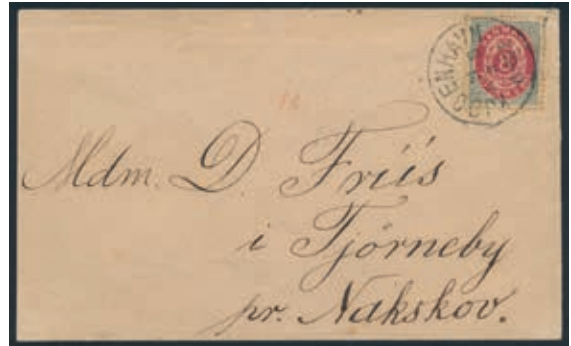 Mdm. D. Friis
i Tjörneby
pr. Nakskov.